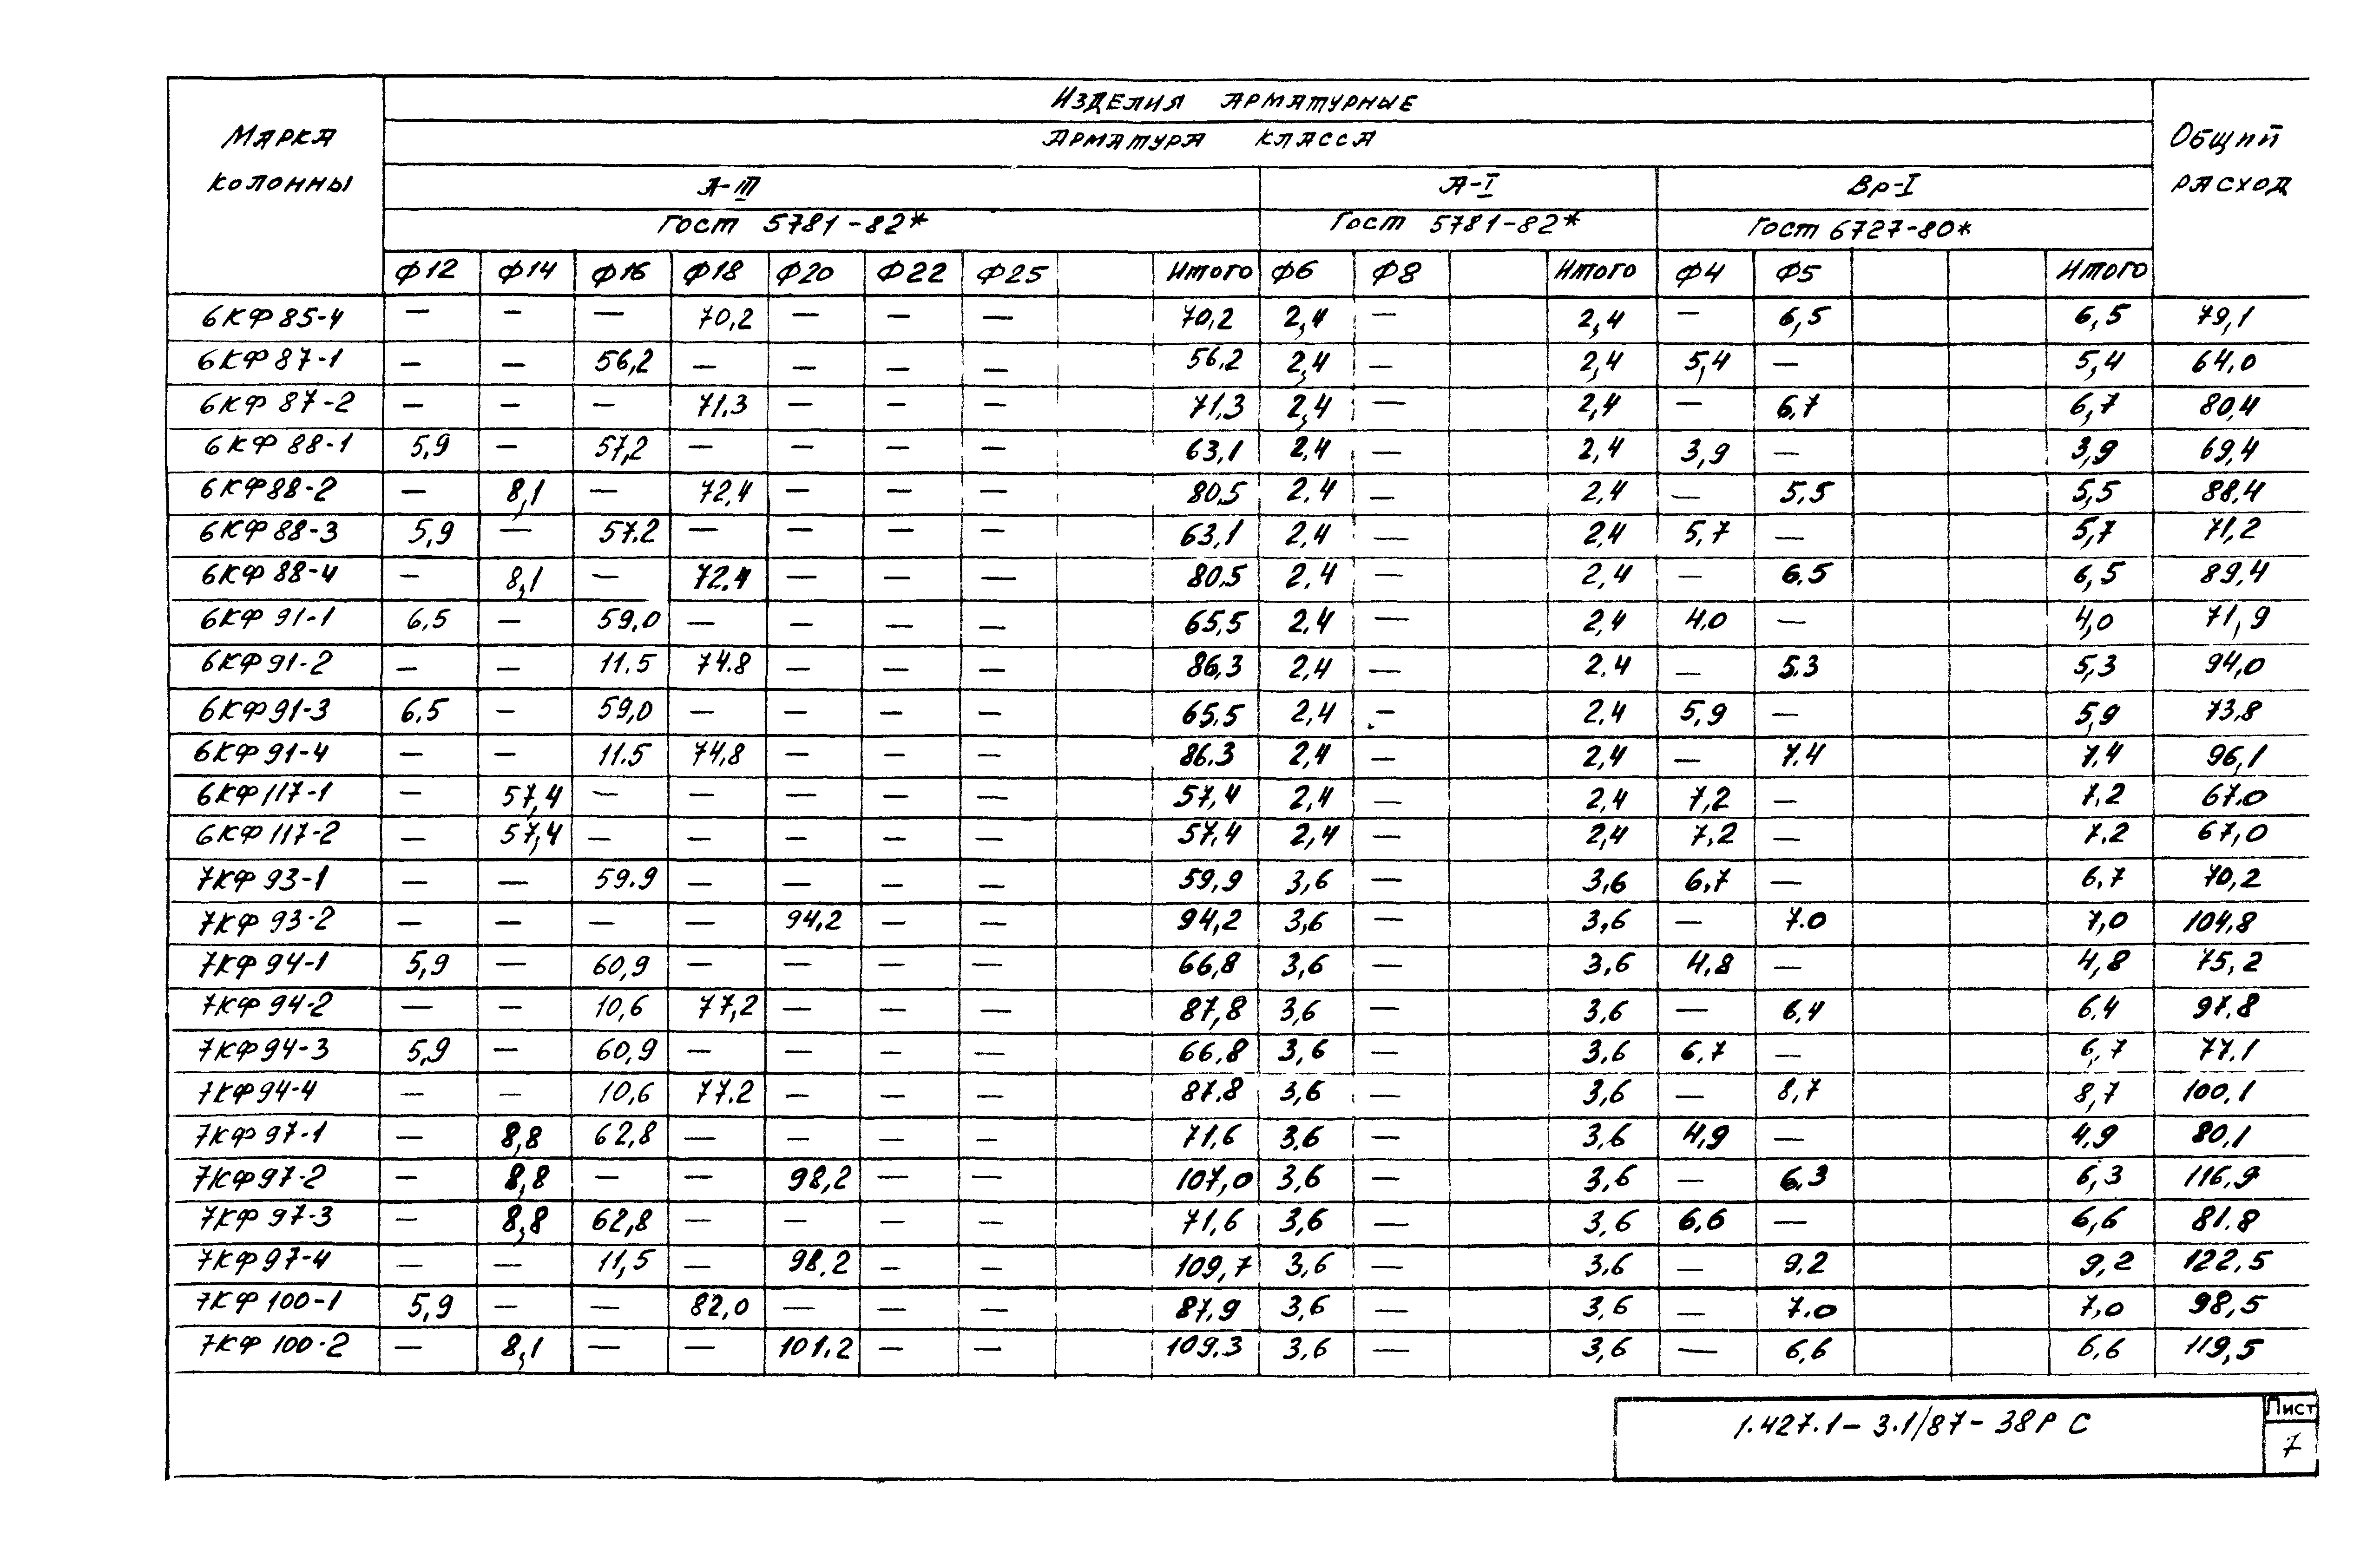 Изделия арматурные
Марка колонны
Арматура класса
Общий расход
А-III А-I Вр-I
Гост 5781-82* Гост 5781-82* Гост 6727-80*
Ф12 Ф14 Ф16 Ф18 Ф20 Ф22 Ф25 Итого Ф6 Ф8 Итого Ф4 Ф5 Итого
6КФ85-4 — — — 70,2 — — — 70,2 2,4 — 2,4 — 6,5 6,5 79,1
6КФ87-1 — — 56,2 — — — — 56,2 2,4 — 2,4 5,4 — 5,4 64,0
6КФ87-2 — — — 71,3 — — — 71,3 2,4 — 2,4 — 6,7 6,7 80,4
6КФ88-1 5,9 — 57,2 — — — — 63,1 2,4 — 2,4 3,9 — 3,9 69,4
6КФ88-2 — 8,1 — 72,4 — — — 80,5 2,4 — 2,4 — 5,5 5,5 88,4
6КФ88-3 5,9 — 57.2 — — — — 63,1 2,4 — 2,4 5,7 — 5,7 71,2
6КФ88-4 — 8,1 — 72.4 — — — 80.5 2,4 — 2,4 — 6.5 6,5 89,4
6КФ91-1 6,5 — 59,0 — — — — 65,5 2.4 — 2,4 4.0 — 4,0 71,9
6КФ91-2 — — 11.5 74.8 — — — 86,3 2,4 — 2.4 — 5.3 5,3 94,0
6КФ91-3 6.5 — 59,0 — — — — 65.5 2,4 — 2.4 5,9 — 5,9 73,8
6КФ91-4 — — 11.5 74,8 — — — 86.3 2,4 — 2,4 — 7.4 7,4 96,1
6КФ117-1 — 57,4 — — — — — 57,4 2,4 — 2,4 7,2 — 7,2 67.0
6КФ117-2 — 57,4 — — — — — 57.4 2,4 — 2,4 7,2 — 7.2 67,0
7КФ93-1 — — 59.9 — — — — 59,9 3,6 — 3,6 6,7 — 6,7 70,2
7КФ93-2 — — — — 94,2 — — 94,2 3,6 — 3,6 — 7.0 7,0 104,8
7КФ94-1 5,9 — 60,9 — — — — 66,8 3,6 — 3,6 4,8 — 4,8 75,2
7КФ94-2 — — 10,6 77,2 — — — 87,8 3,6 — 3,6 — 6,4 6,4 97.8
7КФ94-3 5,9 — 60,9 — — — — 66,8 3,6 — 3,6 6,7 — 6,7 77.1
7КФ94-4 — — 10,6 77.2 — — — 87.8 3,6 — 3,6 — 8,7 8,7 100,1
7КФ97-1 — 8,8 62,8 — — — — 71,6 3,6 — 3,6 4,9 — 4,9 80,1
7КФ97-2 — 8,8 — — 98,2 — — 107,0 3,6 — 3,6 — 6.3 6,3 116,9
7КФ97-3 — 8,8 62,8 — — — — 71,6 3,6 — 3,6 6,6 — 6,6 81.8
7КФ97-4 — — 11,5 — 98,2 — — 109,7 3,6 — 3.6 — 9.2 9,2 122,5
7КФ100-1 5,9 — — 82,0 — — — 87,9 3,6 — 3,6 — 7.0 7,0 98,5
7КФ100-2 — 8,1 — — 101.2 — — 109.3 3,6 — 3,6 — 6,6 6,6 119,5
1.427.1-3.1/87-38РС
Лист
7